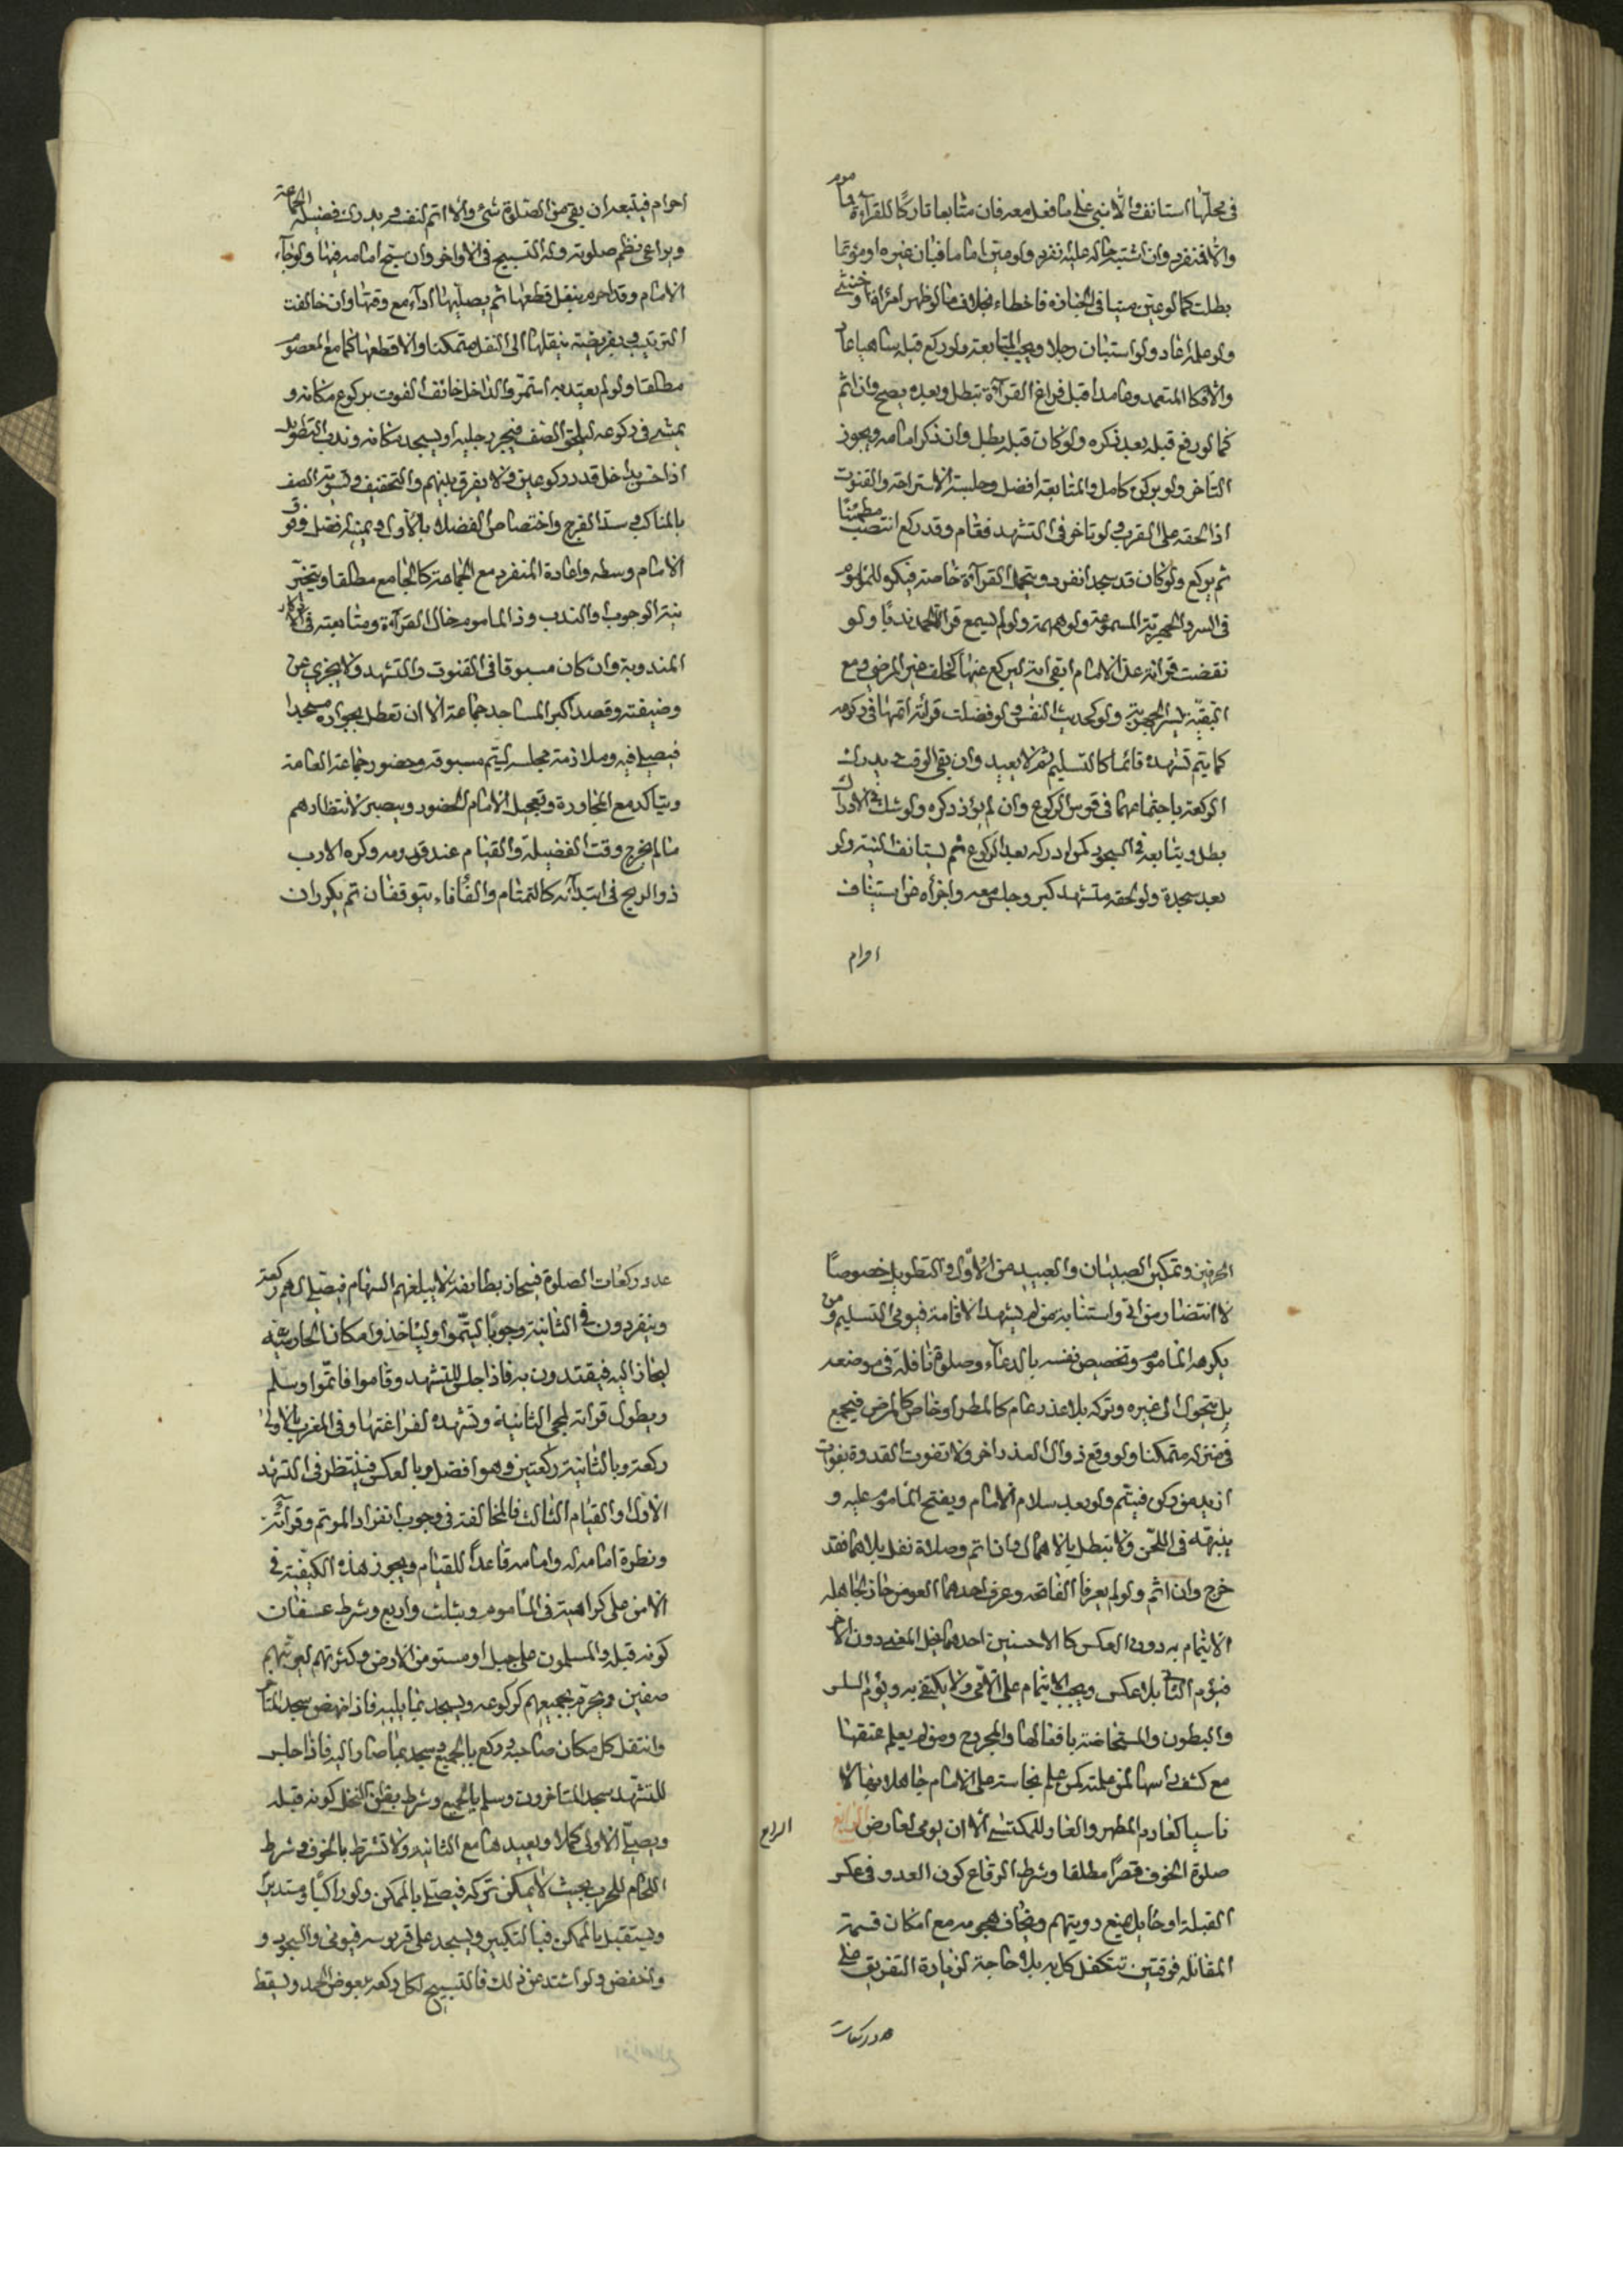 في محلها استانف والا بني على ما فعل معه فان متابعا تاركا للقراءة ماموم
والا فمنفرد وان اشتبه حاله عليه نفرد ولو عين اماما فبان غيره او مؤتما
بطلت كما لو عين ميتا في الجنازة فاخطاء بخلاف ما لو ظهر امراة او خنثى
ولو علم اعاد ولو استبان رجلا ويجب المتابعة ولو ركع قبله ساهيا عاد
والا فكا المتعمد وعامدا قبل فراغ القراءة تبطل وبعده يصح وان اثم
كما لو رفع قبله بعد ذكره ولو كان قبله بطل وان ذكر امامه ويجوز
التاخر ولو بركن كامل والمتابعة افضل وجلسة الاستراحة والقنوت
اذا لحقه على القرب ولو تاخر في التشهد فقام وقد ركع انتصب مطمئنا
ثم يركع ولو كان قد سجد انفرد ويتحمل القراءة خاصة فيكره للماموم
في السر والجهرية المسموعة ولو همهمة ولو لم يسمع قرا الحمد ندبا ولو
نقضت قراته عن الامام ابقى اية ليركع عنها كخلف غير المرضي ومع
التقية يسر الجهرية ولو كحديث النفس ولو فضلت قراته اتمها في ركوعه
كما يتم تشهده قائما كالتسليم ثم لا يعيد وان بقي الوقت يدرك
الركعة باجتماعهما في قوس الركوع وان لم يؤد ذكره ولو شك في الادراك
بطل ويتابعه في السجود كمن ادركه بعد الركوع ثم يستانف النية ولو
بعد سجدة ولو لحقه متشهد كبر وجلس معه واجزاه عن استيناف
احرام
احرام فيتبعه ان بقي من الصلوة شيء والا اتم لنفسه ويدرك فضيلة الجماعة
ويراعي نظم صلوته وله التسبيح في الاواخر وان سبح امامه فيها ولو جاء
الامام وقد احرم بنفل قطعها ثم يصليها اداء مع وقتها وان خالفت
الترتيب وبفريضة ينقلها الى النفل متمكنا والا قطعها كما مع المعصوم
مطلقا ولو لم يعتد به استمر والداخل خائف الفوت يركع مكانه و
يمشي في ركوعه ليلحق الصف فيجر رجليه او يسجد مكانه وندب التطويل
اذا احس بداخل قدر ركوعين ولا يفرق بينهم والتخفيف وتسوية الصف
بالمناكب وسد الفرج واختصاص الفضلاء بالاول ويمينه افضل ووقوف
الامام وسطه واعادة المنفرد مع الجماعة كالجامع مطلقا ويتخير
نية الوجوب والندب وذا الماموم حال القراءة ومتابعته في الاذكار
المندوبة وان كان مسبوقا في القنوت والتشهد ولا يجزي عن
وضيفته وقصد اكبر المساجد جماعة الا ان تعطل بجواره مسجدا
فيصلي فيه وملازمة مجلسه ليتم مسبوقه وحضور جماعة العامة
ويتاكد مع المجاورة وتعجيل الامام الحضور ويصبر لانتظارهم
ما لم يخرج وقت الفضيلة والقيام عند قدومه وكره الارب
ذو الريح في ابتدائه كالتمتام والفافاء يتوقفان ثم يكرران
الحرفين وتمكين الصبيان والعبيد من الاول والتطويل خصوصا
لا انتضار من اتى واستنابة من لم يشهد الاقامة فيومي التسليم ومن
يكرهه الماموم وتخصيص نفسه بالدعاء وصلوة نافلة في موضعه
بل يتحول الى غيره وتركه بلا عذر عام كالمطر او خاص كالمرض فيجمع
في منزله متمكنا ولو وقع زوال العذر اخر ولا تفوت القدوة بفوات
ازيد من ركن فيتم ولو بعد سلام الامام ويفتح الماموم عليه و
ينبهه في اللحن ولا تبطل بالاهمال وان اثم وصلاة نفل بلاهما فقد
خرج وان اثم ولو لم يعرفا الفاتحه وعرف احدهما العوض جاز لجاهله
الائتمام به دون العكس كالاحسنين احدهما قبل المغير دون الاخر
فيؤم الثاني بلا عكس ويجب الائتمام على الامي ولا يكتفى به ويؤم السلس
والبطون والمستحاضة بافعالها والمجروح ومن لم يعلم عتقها
مع كشف راسها لمن علمته كمن علم نجاسته على الامام جاهلا بها لا
ناسيا كعادم المطهر والعار للمكتسي الا ان يومي لعارض الرابع
الرابع
صلوة الخوف قصرا مطلقا وشرط الرقاع كون العدو في عكس
القبلة او حايل يمنع رويتهم ويخاف هجومه مع امكان قسمة
المقاتله فرقتين تتكفل كل به بلا حاجة لزيادة التفريق على
عدد ركعات
عدد ركعات الصلوة فينحاز بطائفة لا يبلغهم السهام فيصلي لهم ركعة
وينفردون في الثانية وجوبا ليتموا ولياخذوا مكان الحارسة
لينحاز اليه فيقتدون به فاذا جلس للتشهد وقاموا فاتموا وسلم
ويطول قراته لمجي الثانية وتشهده لفراغتها وفي المغرب بالاولى
ركعة وبالثانية ركعتين وهو افضل وبالعكس فينتظر في التشهد
الاول او القيام الثالث فالمخالفة في وجوب انفراد الموتم وقرائته
ونظرة امامه له وامامه قاعدا للقيام ويجوز هذه الكيفية في
الامن على كراهية في الماموم وبثلث واربع وشرط عسفان
كونه قبله والمسلمون على جبل او مستو من الارض وكثرتهم ليرتبهم
صفين ويحرم بجميعهم كركوعه ويسجد بما يليه فاذا نهض سجد المتاخر
وانتقل كل مكان صاحبه وركع بالجميع وسجد بما صار اليه فاذا جلس
للتشهد سجد المتاخرون وسلم بالجميع وشرط بطن النخل كونه قبله
ويصلي الاولى كملا ويعيدها مع الثانيه ولا تشترط بالخوف وشرط
التحام للحرب بحيث لا يمكن تركه فيصلي بالممكن ولو راكبا ومستدبرا
ويستقبل بالممكن فبالتكبير ويسجد على قربوسه فيومي والسجود و
واخفض ولو اشتد عن ذلك فالتسبيح لكل ركعه بعوض الحمد ويسقط